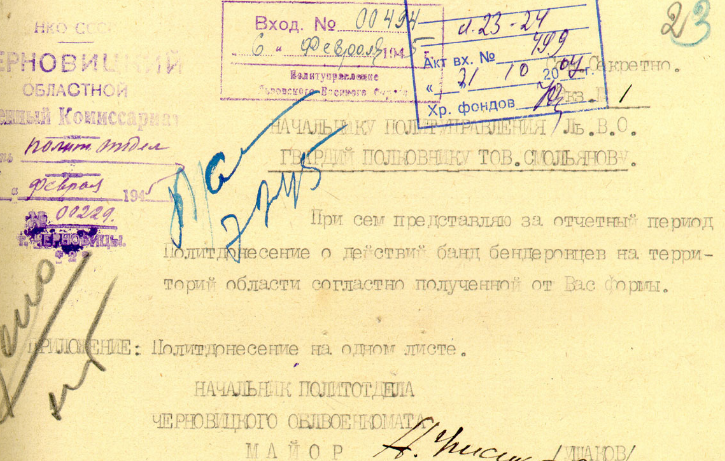 НКО СССР
ЧЕРНОВИЦКИЙ
ОБЛАСТНОЙ
Военный Комиссариат
полит отдел
" февраля 1945
№ 00229.
г. ЧЕРНОВИЦЫ.
Вход. № 00494
" 6 " Февраля 1945
Политуправление
Львовского Военного Округа
л. 23-24
Акт вх. № 499
« 21 10 2004 г.
Хр. фондов
23
Сов. Секретно.
Экз. № 1
НАЧАЛЬНИКУ ПОЛИТУПРАВЛЕНИЯ/Ль.В.О.
ГВАРДИЙ ПОЛКОВНИКУ ТОВ.СМОЛЬЯНОВУ.
При сем представляю за отчетный период
Политдонесение о действий банд бендеровцев на терри-
торий области согластно полученной от Вас формы.
ПРИЛОЖЕНИЕ: Политдонесение на одном листе.
НАЧАЛЬНИК ПОЛИТОТДЕЛА
ЧЕРНОВИЦКОГО ОБЛВОЕНКОМАТА
МАЙОР /УШАКОВ/